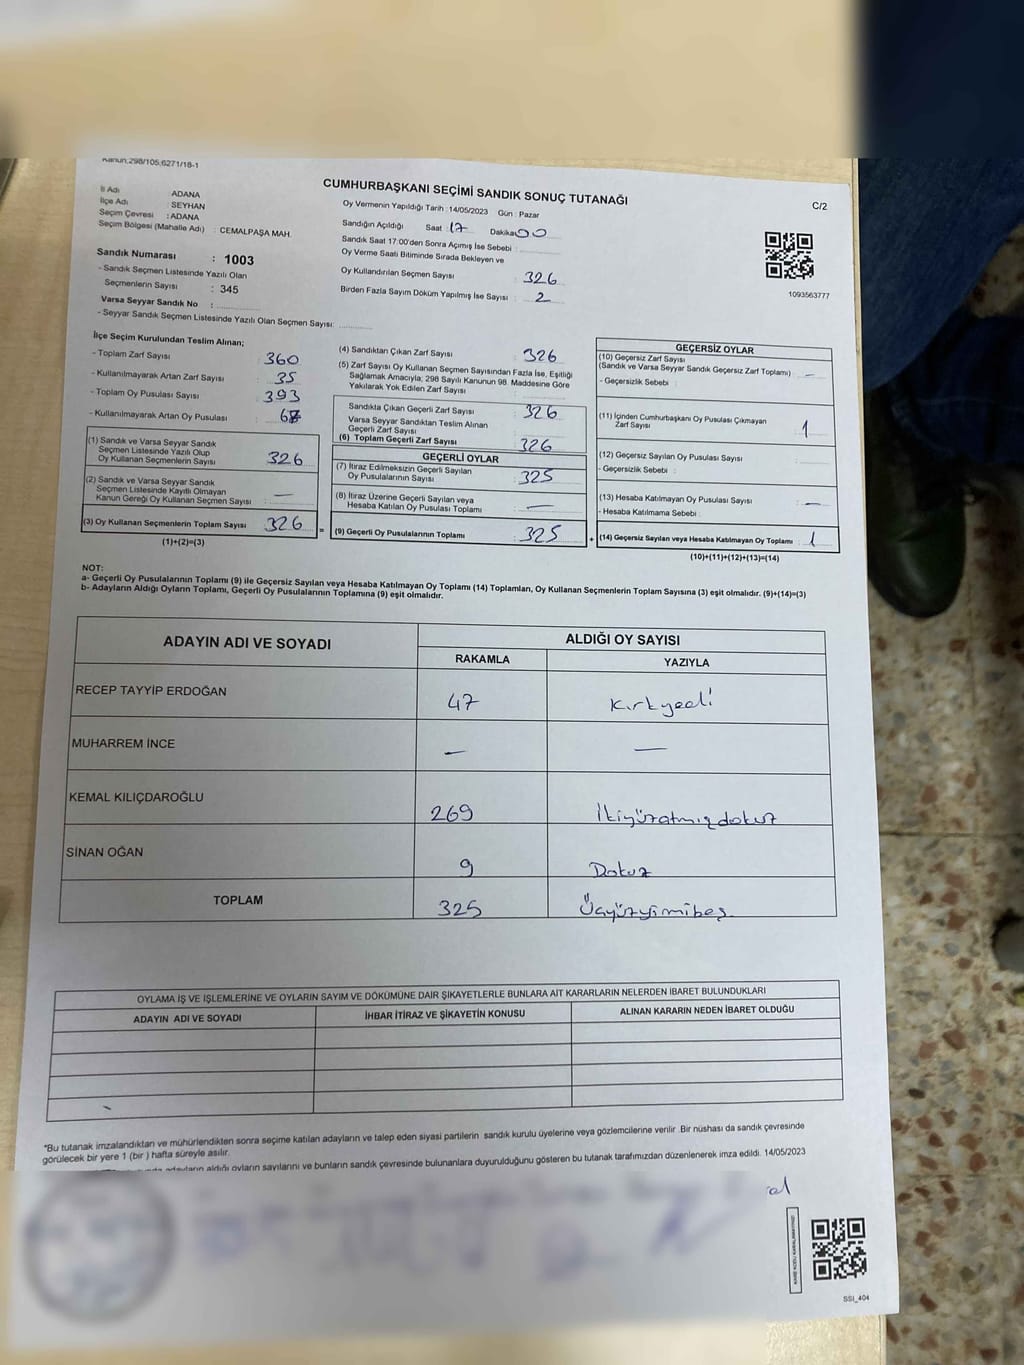 Kanun;298/105;6271/18-1
CUMHURBAŞKANI SEÇİMİ SANDIK SONUÇ TUTANAĞI
C/2
İl Adı ADANA
İlçe Adı : SEYHAN
Seçim Çevresi : ADANA
Seçim Bölgesi (Mahalle Adı) : CEMALPAŞA MAH.
Sandık Numarası : 1003
- Sandık Seçmen Listesinde Yazılı Olan
Seçmenlerin Sayısı : 345
Varsa Seyyar Sandık No :
- Seyyar Sandık Seçmen Listesinde Yazılı Olan Seçmen Sayısı:
Oy Vermenin Yapıldığı Tarih :14/05/2023 Gün : Pazar
Sandığın Açıldığı Saat : 17 Dakika 00
Sandık Saat 17:00'den Sonra Açımış İse Sebebi :
Oy Verme Saati Bitiminde Sırada Bekleyen ve
Oy Kullandırılan Seçmen Sayısı : 326
Birden Fazla Sayım Döküm Yapılmış İse Sayısı : 2
1093563777
İlçe Seçim Kurulundan Teslim Alınan;
- Toplam Zarf Sayısı : 360
- Kullanılmayarak Artan Zarf Sayısı : 35
- Toplam Oy Pusulası Sayısı : 393
- Kullanılmayarak Artan Oy Pusulası :
(1) Sandık ve Varsa Seyyar Sandık
Seçmen Listesinde Yazılı Olup
Oy Kullanan Seçmenlerin Sayısı : 326
(2) Sandık ve Varsa Seyyar Sandık
Seçmen Listesinde Kayıtlı Olmayan
Kanun Gereği Oy Kullanan Seçmen Sayısı : —
(3) Oy Kullanan Seçmenlerin Toplam Sayısı : 326
(1)+(2)=(3)
(4) Sandıktan Çıkan Zarf Sayısı : 326
(5) Zarf Sayısı Oy Kullanan Seçmen Sayısından Fazla İse, Eşitliği
Sağlamak Amacıyla; 298 Sayılı Kanunun 98. Maddesine Göre
Yakılarak Yok Edilen Zarf Sayısı :
Sandıkta Çıkan Geçerli Zarf Sayısı : 326
Varsa Seyyar Sandıktan Teslim Alınan
Geçerli Zarf Sayısı :
(6) Toplam Geçerli Zarf Sayısı : 326
GEÇERLİ OYLAR
(7) İtiraz Edilmeksizin Geçerli Sayılan
Oy Pusulalarının Sayısı : 325
(8) İtiraz Üzerine Geçerli Sayılan veya
Hesaba Katılan Oy Pusulası Toplamı : —
= (9) Geçerli Oy Pusulalarının Toplamı : 325
GEÇERSİZ OYLAR
(10) Geçersiz Zarf Sayısı
(Sandık ve Varsa Seyyar Sandık Geçersiz Zarf Toplamı) : —
- Geçersizlik Sebebi :
(11) İçinden Cumhurbaşkanı Oy Pusulası Çıkmayan
Zarf Sayısı : 1
(12) Geçersiz Sayılan Oy Pusulası Sayısı :
- Geçersizlik Sebebi :
(13) Hesaba Katılmayan Oy Pusulası Sayısı : —
- Hesaba Katılmama Sebebi :
+ (14) Geçersiz Sayılan veya Hesaba Katılmayan Oy Toplamı : 1
(10)+(11)+(12)+(13)=(14)
NOT:
a- Geçerli Oy Pusulalarının Toplamı (9) ile Geçersiz Sayılan veya Hesaba Katılmayan Oy Toplamı (14) Toplamları, Oy Kullanan Seçmenlerin Toplam Sayısına (3) eşit olmalıdır. (9)+(14)=(3)
b- Adayların Aldığı Oyların Toplamı, Geçerli Oy Pusulalarının Toplamına (9) eşit olmalıdır.
ADAYIN ADI VE SOYADI ALDIĞI OY SAYISI
RAKAMLA YAZIYLA
RECEP TAYYİP ERDOĞAN 47 Kırkyedi
MUHARREM İNCE — —
KEMAL KILIÇDAROĞLU 269 İkiyüzatmışdokuz
SİNAN OĞAN 9 Dokuz
TOPLAM 325 Üçyüzyimibeş
OYLAMA İŞ VE İŞLEMLERİNE VE OYLARIN SAYIM VE DÖKÜMÜNE DAİR ŞİKAYETLERLE BUNLARA AİT KARARLARIN NELERDEN İBARET BULUNDUKLARI
ADAYIN ADI VE SOYADI İHBAR İTİRAZ VE ŞİKAYETİN KONUSU ALINAN KARARIN NEDEN İBARET OLDUĞU
*Bu tutanak imzalandıktan ve mühürlendikten sonra seçime katılan adayların ve talep eden siyasi partilerin sandık kurulu üyelerine veya gözlemcilerine verilir .Bir nüshası da sandık çevresinde
görülecek bir yere 1 (bir ) hafta süreyle asılır.
adayların aldığı oyların sayılarını ve bunların sandık çevresinde bulunanlara duyurulduğunu gösteren bu tutanak tarafımızdan düzenlenerek imza edildi. 14/05/2023
SSI_404